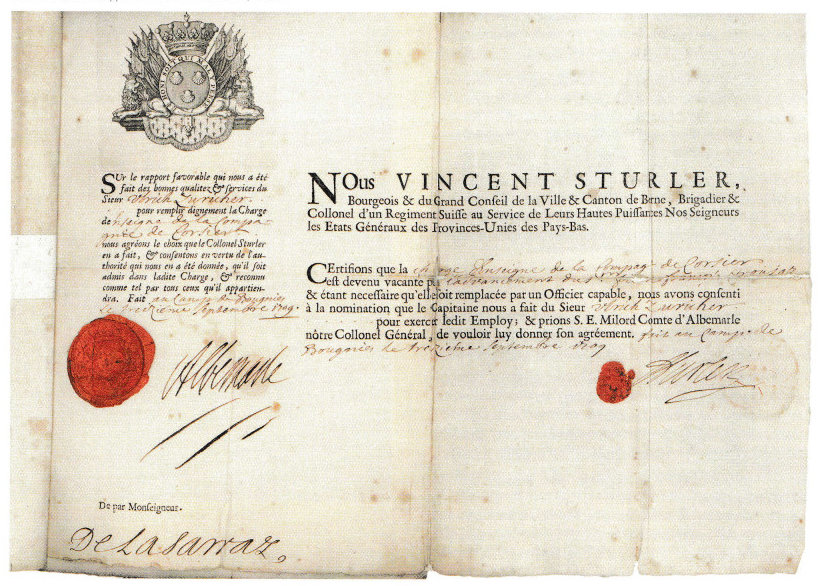 HONI SOIT QUI MAL Y PENSE
SUr le rapport favorable qui nous a été
fait des bonnes qualitez & services du
Sieur Ulrich Zuricher
pour remplir dignement la Charge
de
de Corsier
nous agréons le choix que le Collonel Sturler
en a fait, & consentons en vertu de l'au-
thorité qui nous en a été donnée, qu'il soit
admis dans ladite Charge, & reconnu
comme tel par tous ceux qu'il appartien-
dra. Fait au Camp de Bougnies
Le treizieme Septembre 1709
Albemarle
De par Monseigneur.
De Lasarraz,
NOus VINCENT STURLER,
Bourgeois & du Grand Conseil de la Ville & Canton de Berne, Brigadier &
Collonel d'un Regiment Suisse au Service de Leurs Hautes Puissantes Nos Seigneurs
les Etats Généraux des Provinces-Unies des Pays-Bas.
CErtifions que la charge d'Enseigne de la Compag. de Corsier
est devenu vacante par l'avancement du
& étant necessaire qu'elle soit remplacée par un Officier capable, nous avons consenti
à la nomination que le Capitaine nous a fait du Sieur Ulrich Zuricher
pour exercer ledit Employ; & prions S. E. Milord Comte d'Albemarle
nôtre Collonel Général, de vouloir luy donner son agréement. fait au Camp de
Bougnies le treizieme Septembre 1709
Sturler